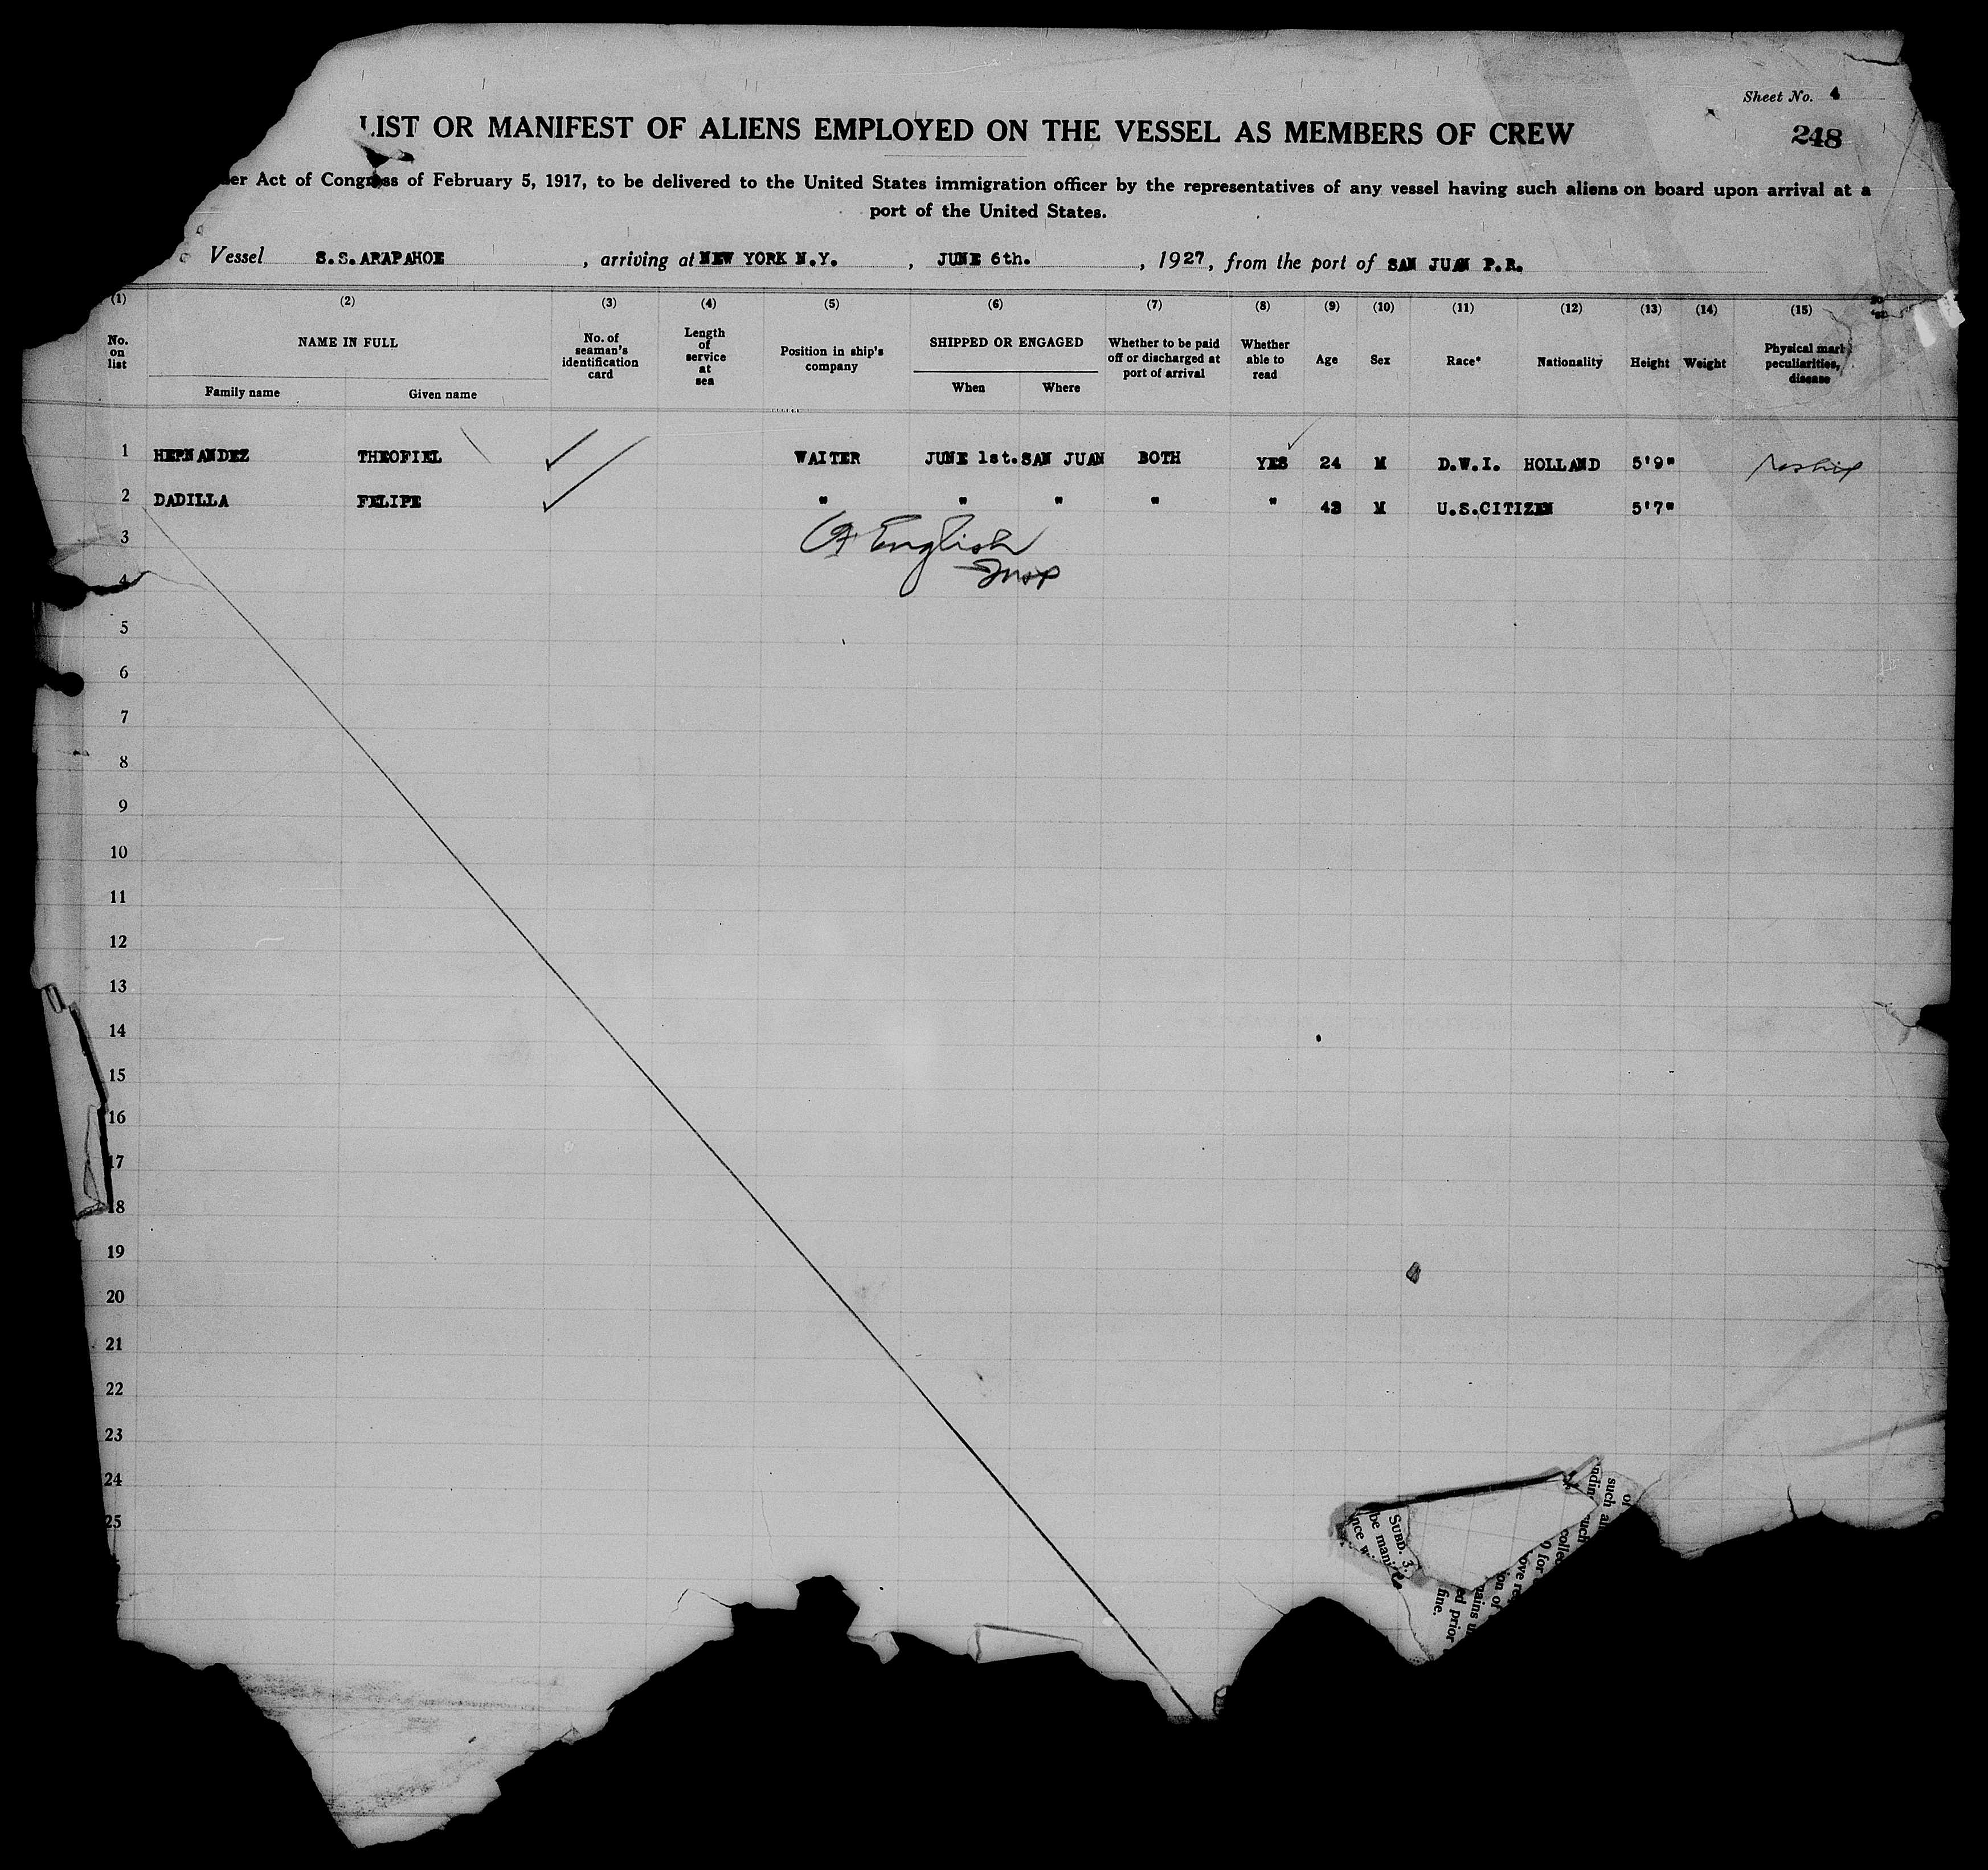 Sheet No. 4
LIST OR MANIFEST OF ALIENS EMPLOYED ON THE VESSEL AS MEMBERS OF CREW
248
der Act of Congress of February 5, 1917, to be delivered to the United States immigration officer by the representatives of any vessel having such aliens on board upon arrival at a
port of the United States.
Vessel S.S. ARAPAHOE , arriving at NEW YORK N.Y. , JUNE 6th. , 1927, from the port of SAN JUAN P.R.
(1) (2) (3) (4) (5) (6) (7) (8) (9) (10) (11) (12) (13) (14) (15)
No. on list NAME IN FULL Family name Given name No. of seaman's identification card Length of service at sea Position in ship's company SHIPPED OR ENGAGED When Where Whether to be paid off or discharged at port of arrival Whether able to read Age Sex Race* Nationality Height Weight Physical mark peculiarities, disease
1 HERNANDEZ THEOFIEL WAITER JUNE 1st. SAN JUAN BOTH YES 24 M D.W.I. HOLLAND 5'9"
2 DADILLA FELIPE " " " " " 43 M U.S.CITIZEN 5'7"
3
English
Insp
4
5
6
7
8
9
10
11
12
13
14
15
16
17
18
19
20
21
22
23
24
25
SUBD. 3.
be mani
nce w
such al
of
ndin
uch
colle
0 for
ove re
on of
nains u
ed prior
fine.